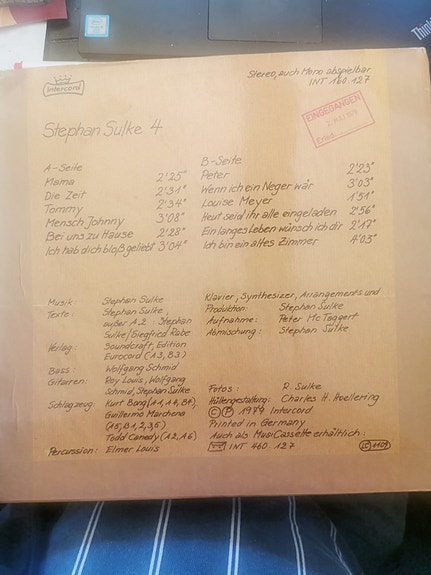 Intercord
Stereo, auch Mono abspielbar
INT 160.127
EINGEGANGEN
Stephan Sulke 4
A-Seite
Mama 2'25"
Die Zeit 2'31"
Tommy 2'34"
Mensch Johnny 3'08"
Bei uns zu Hause 2'28"
Ich hab dich bloß geliebt 3'04"
B-Seite
Peter 2'23"
Wenn ich ein Neger wär 3'03"
Louise Meyer 1'51"
Heut seid ihr alle eingeladen 2'56"
Ein langes Leben wünsch ich dir 2'17"
Ich bin ein altes Zimmer 4'03"
Musik: Stephan Sulke
Texte: Stephan Sulke
außer A2: Stephan
Sulke/Siegfried Rabe
Verlag: Soundcraft, Edition
Eurocord (A3, B3)
Bass: Wolfgang Schmid
Gitarren: Roy Louis, Wolfgang
Schmid, Stephan Sulke
Schlagzeug: Kurt Bong (A1, A4, B4)
Guillermo Marchena
(A5, B1, 2, 3, 5)
Todd Canedy (A2, A6)
Percussion: Elmer Louis
Klavier, Synthesizer, Arrangements und
Produktion: Stephan Sulke
Aufnahme: Peter McTaggart
Abmischung: Stephan Sulke
Fotos: R. Sulke
Hüllengestaltung: Charles H. Hoellering
© ℗ 1979 Intercord
Printed in Germany
Auch als MusiCassette erhältlich:
INT 460.127
LC 1109
Think